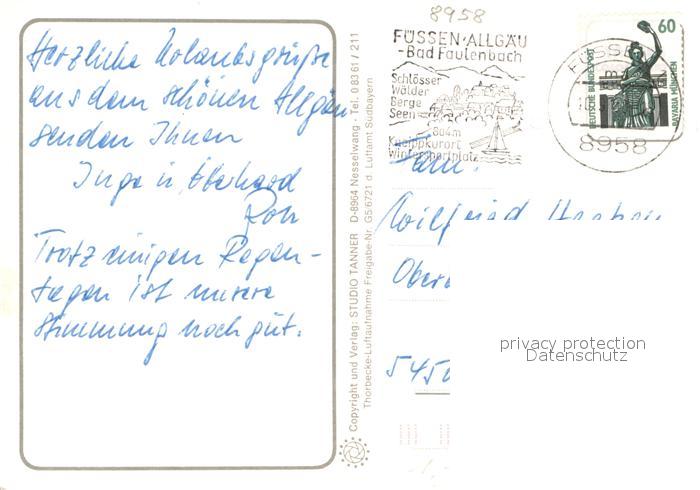 Herzliche Urlaubsgrüße
aus dem schönen Allgäu
senden Ihnen
Inge u. Eberhard
Trotz einigen Regen-
tagen ist unsere
Stimmung noch gut.
Copyright und Verlag: STUDIO TANNER D-8964 Nesselwang · Tel. 0 83 61 / 211
Thorbecke-Luftaufnahme Freigabe-Nr. G5/6721 d. Luftamt Südbayern
8958
FÜSSEN·ALLGÄU
-Bad Faulenbach
Schlösser
Wälder
Berge
Seen
804m
Kneippkurort
Wintersportplatz
FÜSSEN
8958
60
DEUTSCHE BUNDESPOST
BAVARIA MÜNCHEN
Fam.
Wilfried
545
privacy protection
Datenschutz